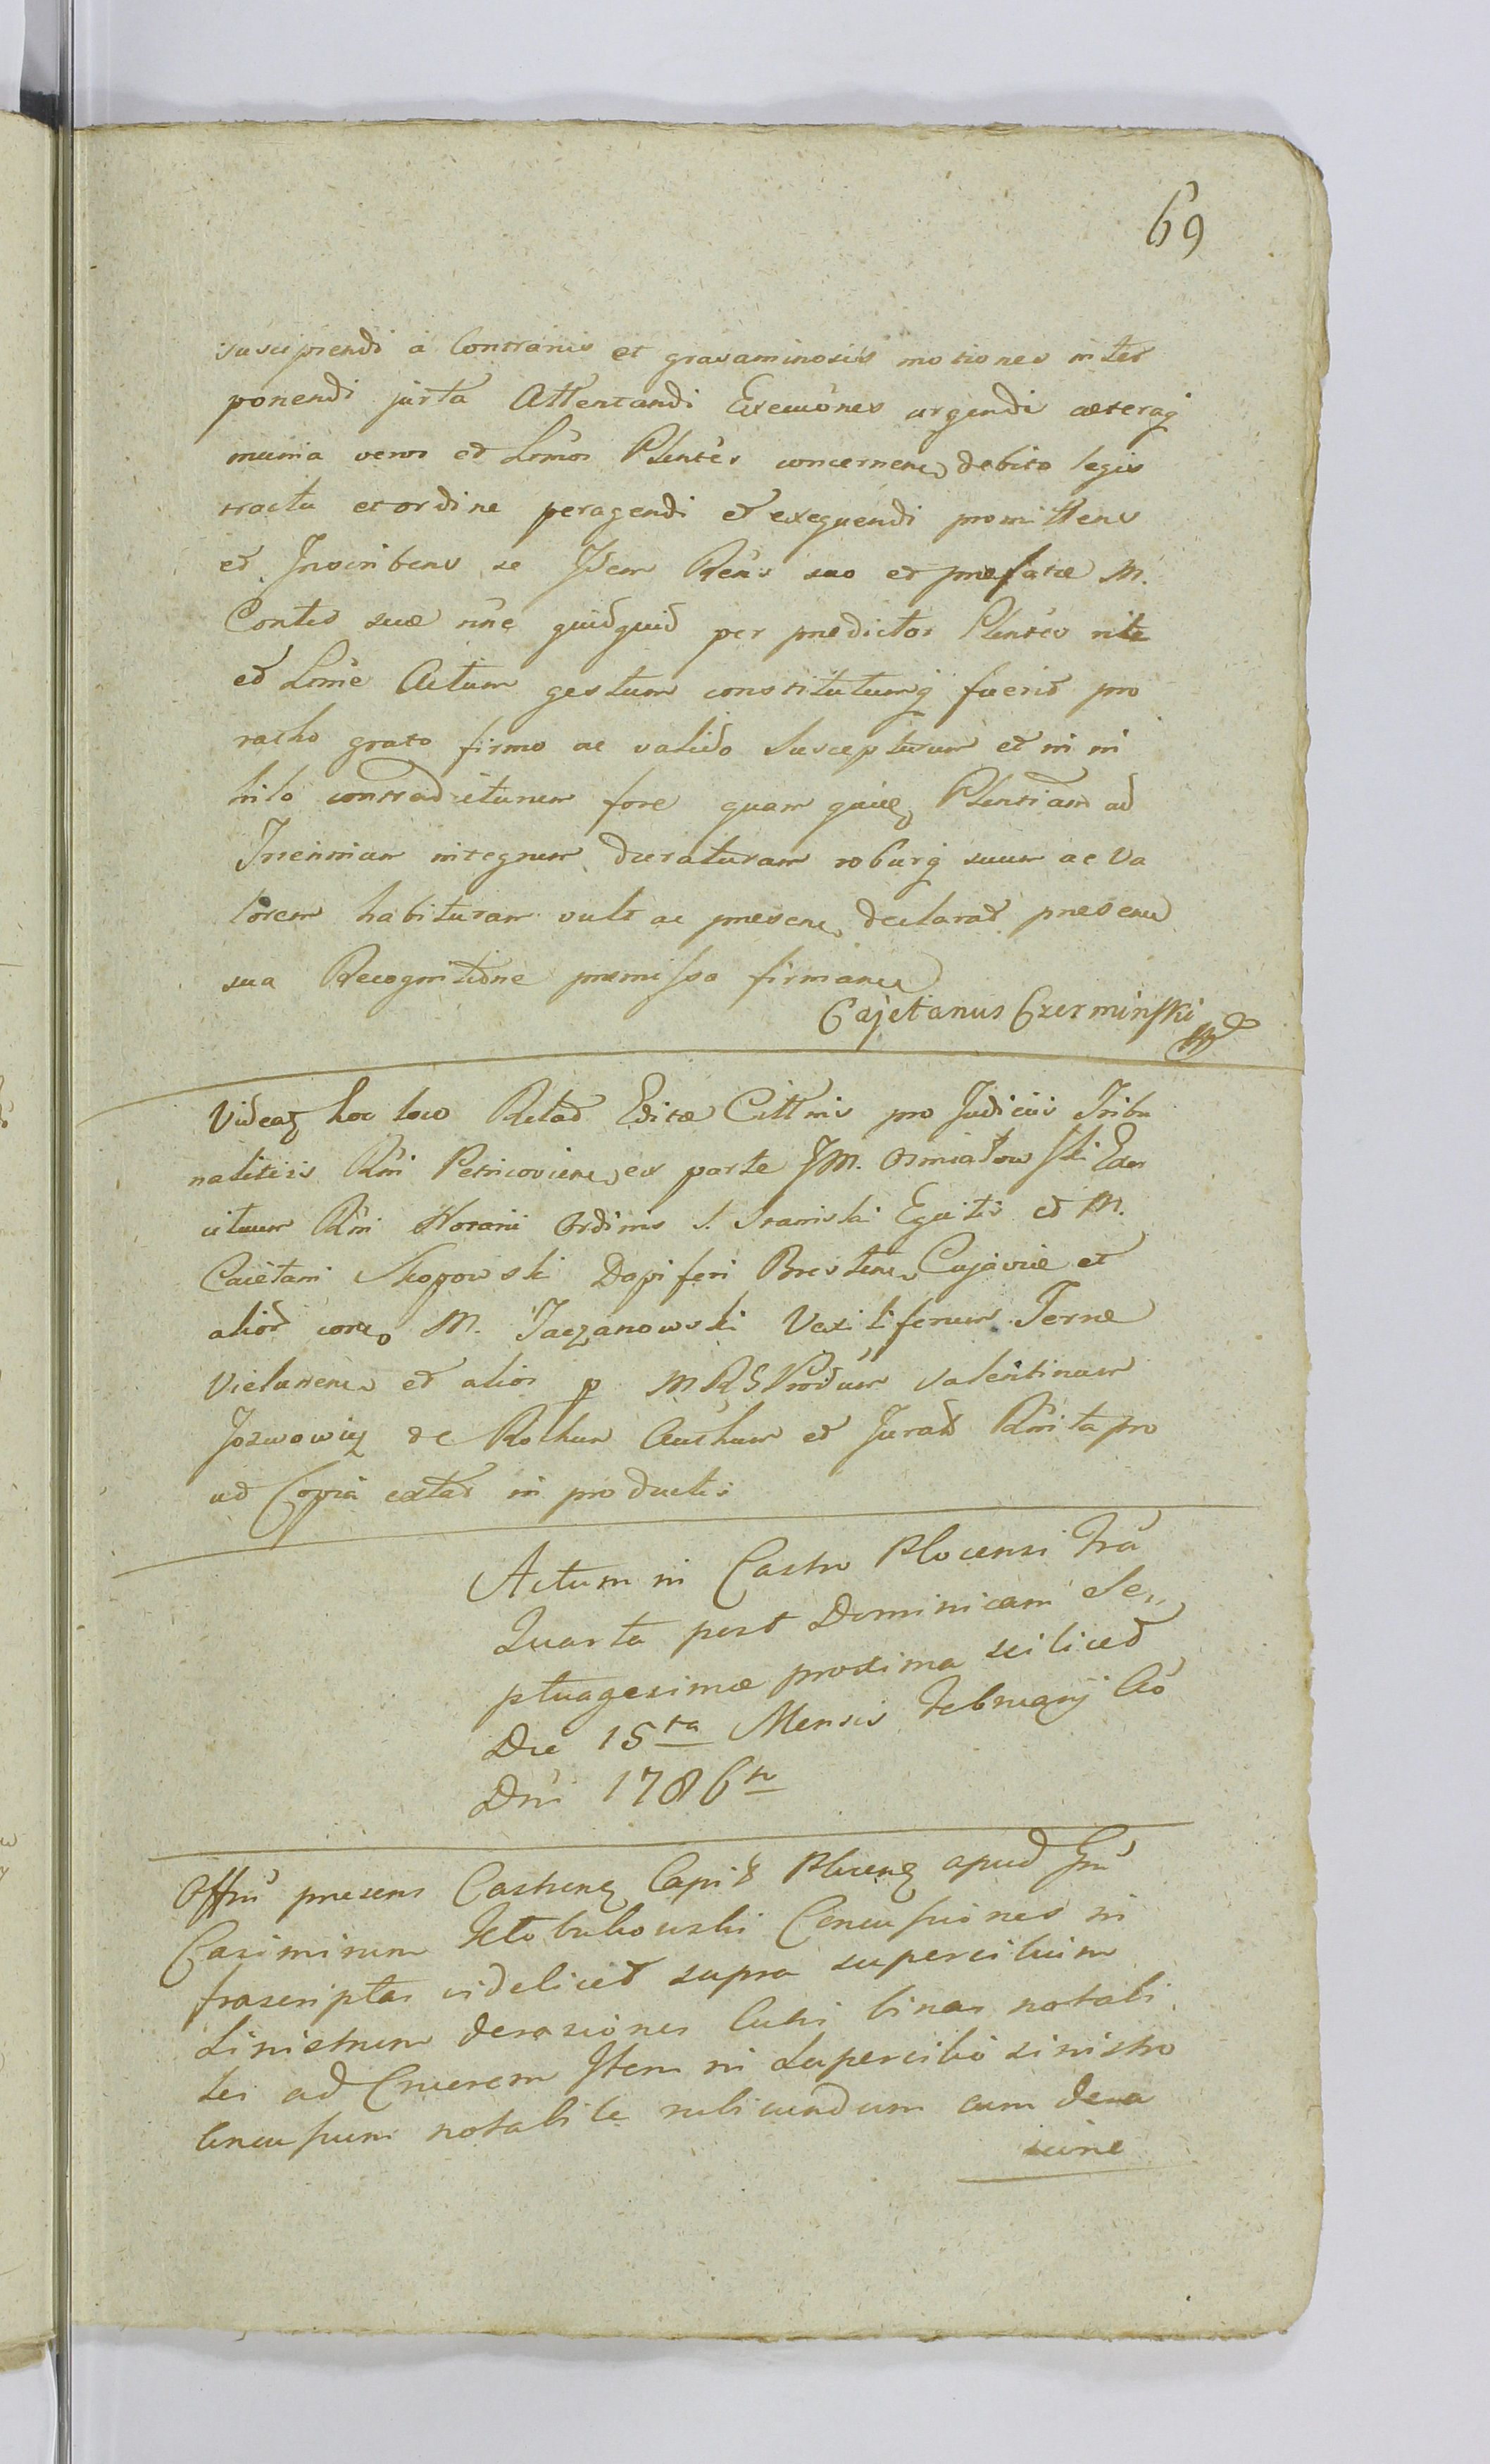 69
suscipiendi a Contrariis et gravaminosis motiones inter
ponendi jurta Attentandi Execuones urgendi caeteraq
munia veros et Lrmos Plentes concernen, debito legis
tractu et ordine peragendi et exequendi promittens
et Inscribens se Idem Rens suo et praefatae M.
Contis suae nne quidquid per praedictos Plentes rite
et Lrme Actum gestum constitutumq fuerit pro
ratho grato firmo ac valido Suscepturum et in ni
hilo contradicturum fore quam quid, Plentiam ad
Triennium integrum duraturam roburq suum ac Va
lorem habituram vult ac presen, declarat presen
sua Recognitione praemisso firman
Cajetanus Czerminski mp
Videaz hoc loco Relao Editae Cittnis pro Judiciis Tribu
nalitiis Rni Petricovien, ex parte JM. Osmiałowski Exer
cituum Rni Notarii Ordinis S. Stanislai Equitis et M.
Caietani Skopowski Dapiferi Bresten, Cujaviae et
alior cora, M. Taczanowski Vexiliferum Terrae
Vielunen, et alios p MRS Produm Valentinum
Jozwowicz de Rothm Authum et Jurat Rnita pro
ut Copia extat in productis
Actum in Castro Plocensi Fra
Quarta post Dominicam Se„
ptuagesimae proxima scilicet
Die 15ta Mensis Februarij Ao
Dni 1786to
Offm presens Castrenz Capit Plocenz apud Gm
Casimirum Kłobukowski Concusiones in
frascriptas videlicet supra supercilium
Sinistrum derasiones Cutis binas notabi
les ad Cruorem Item in Supercilio sinistro
Concusium notabile rubicundum cum dera
sione